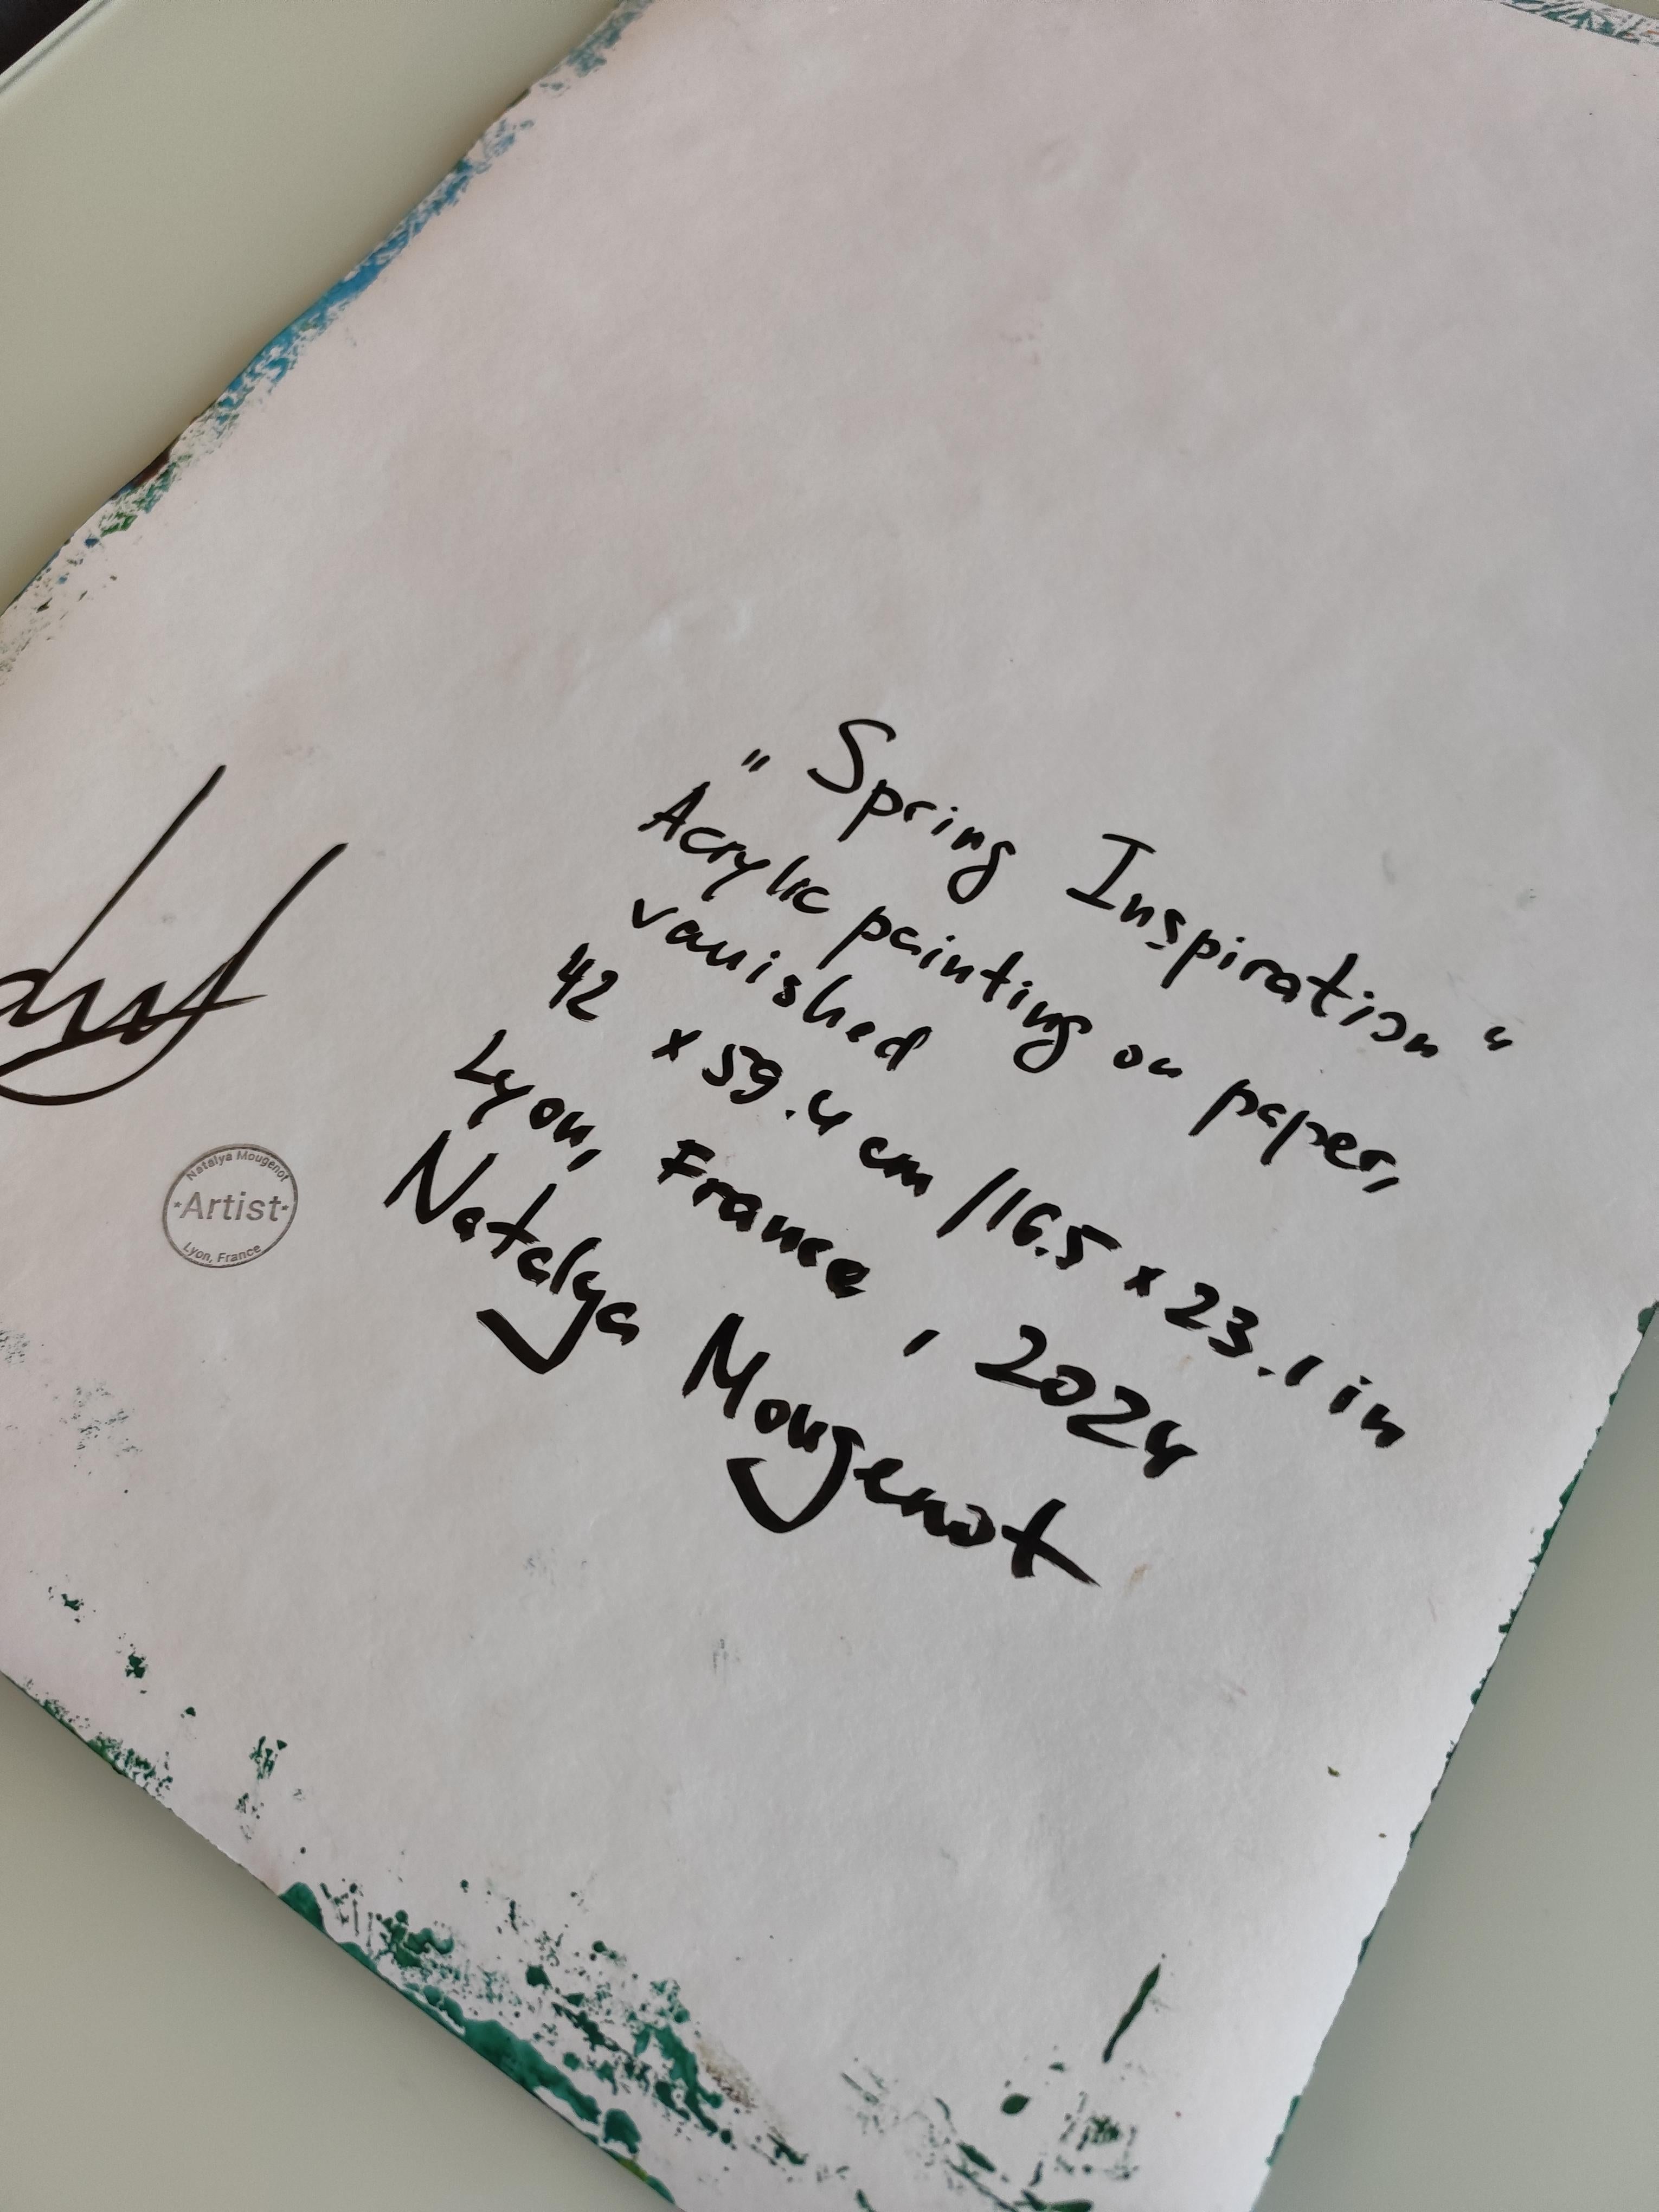 " Spring Inspiration "
Acrylic painting on paper,
vanished
42 x 59.4 cm / 16.5 x 23.1 in
Lyon, France, 2024
Natalya Mougenot
Natalya Mougenot
Artist
Lyon, France